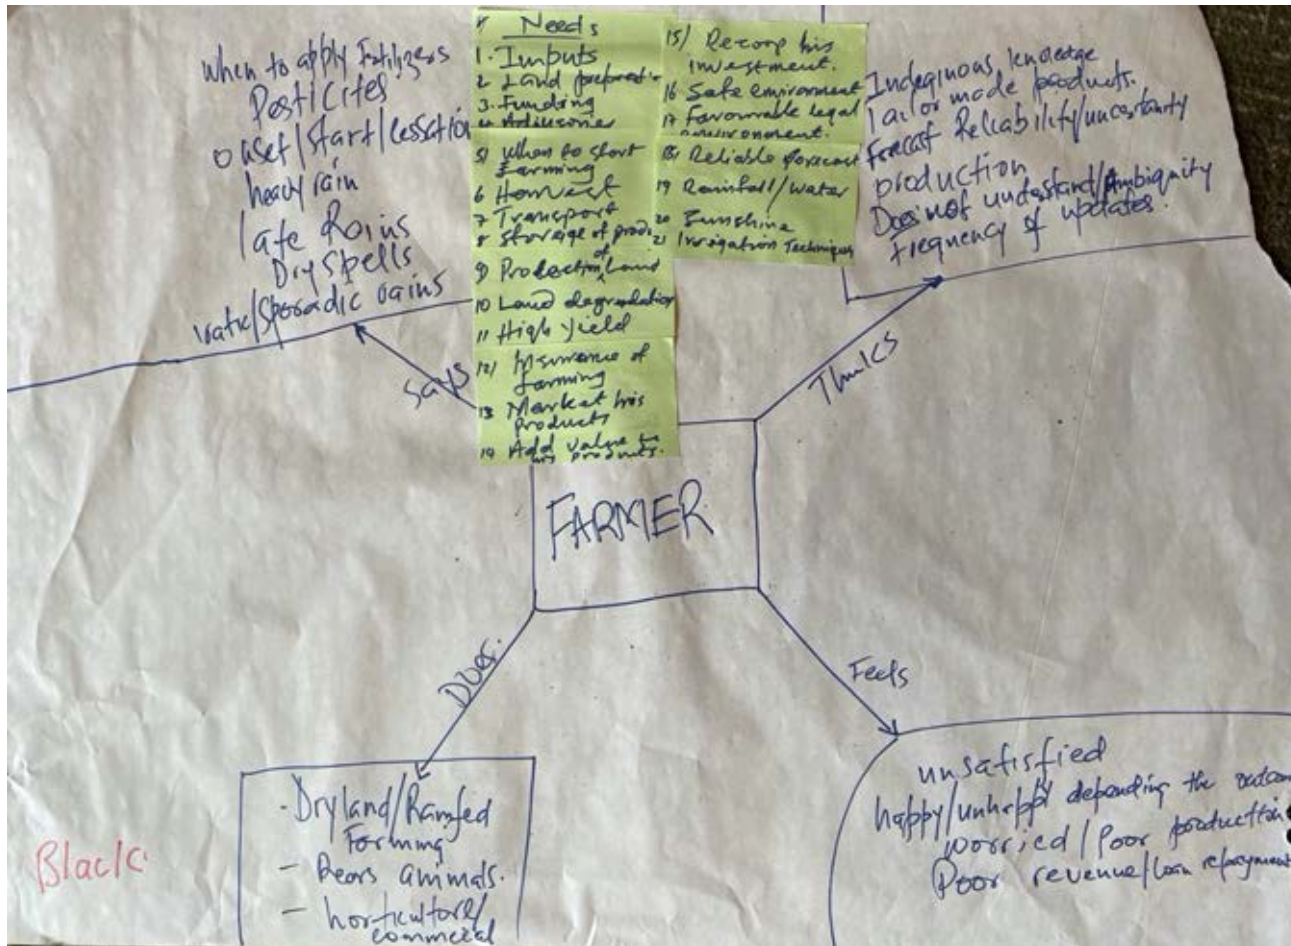 When to apply Fertilizers
Pesticites
onset/start/cessation
heavy rain
late Rains
Dry Spells
ratic/Sporadic rains
Says
Needs
1. Imputs
2 Land preparatio
3. Funding
4 Adiusories
5/ When to start
farming
6 Harvest
7 Transport
8 Storage of produ
9 Protection of Land
10 Land degradation
11 High yield
12/ Insurance of
farming
13 Market his
products
14 Add value to
his products.
15/ Recoop his
investment.
16 Safe environment
17 Favourable legal
environment.
18, Reliable forecast
19 Rainfall/water
20 Sunshine
21 Irrigation Techniques
Indeginous knoledge
Tailor made products.
Forecast Reliability/uncertanty
production
Does not understant/Ambiquity
frequency of updates.
Thinks
FARMER
Does.
Feels
- Dryland/Rainfed
Farming
- Rears animals.
- horticulture/
commercial
unsatisfied
happy/unhappy depending the outcom
worried/Poor production
Poor revenue/Loan repayment
Black